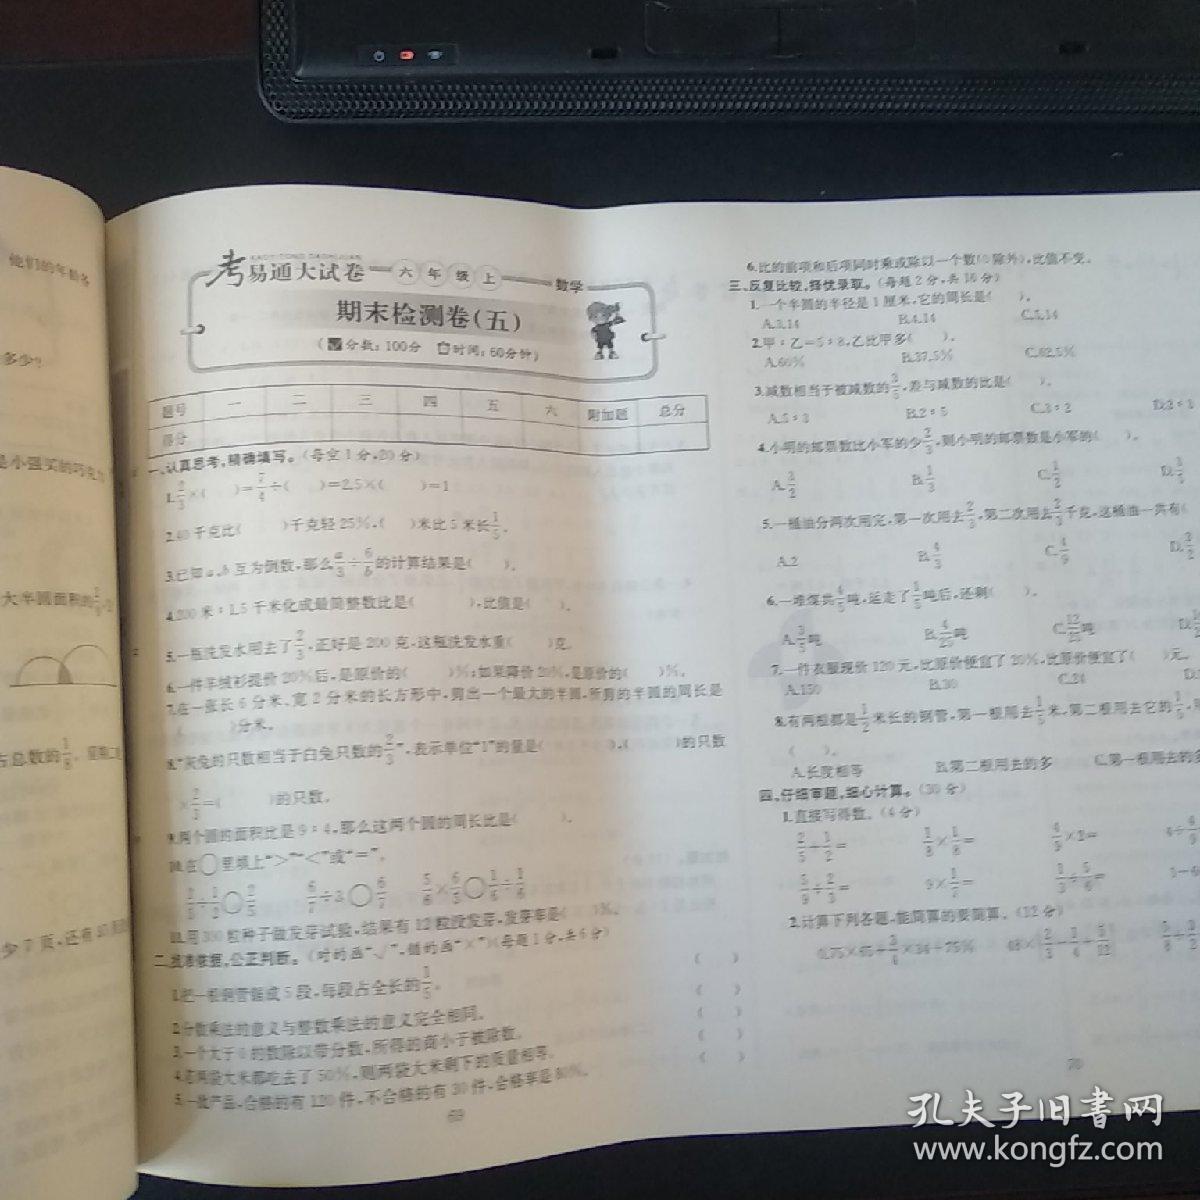 他们的年龄各
多少?
是小强买的巧克力
大半圆面积的
占总数的1/8,
少7页,还有
考易通大试卷 六年级上 数学
期末检测卷(五)
(分数:100分 时间:60分钟)
题号 一 二 三 四 五 六 附加题 总分
得分
一、认真思考,精确填写。(每空1分,20分)
1. 2/3×( )=7/4÷( )=2.5×( )=1
2.60千克比( )千克轻25%,( )米比5米长1/5。
3.已知a、b互为倒数,那么a/3÷6/b的计算结果是( )。
4.200米:1.5千米化成最简整数比是( ),比值是( )。
5.一瓶洗发水用去了2/3,正好是200克,这瓶洗发水重( )克。
6.一件羊绒衫提价20%后,是原价的( )%;如果降价20%,是原价的( )%。
7.在一张长6分米、宽2分米的长方形中,剪出一个最大的半圆,所剪的半圆的周长是
( )分米。
8.“灰兔的只数相当于白兔只数的2/3”,表示单位“1”的量是( ),( )的只数
×2/3=( )的只数。
9.两个圆的面积比是9:4,那么这两个圆的周长比是( )。
10.在○里填上“>”“<”或“=”。
÷1/2○2/5 6/7÷3○6/7 5/6×6/5○1/6÷1/6
11.用300粒种子做发芽试验,结果有12粒没发芽,发芽率是( )%。
二、找准依据,公正判断。(对的画“√”,错的画“×”)(每题1分,共6分)
1.把一根钢管锯成5段,每段占全长的1/5。 ( )
2.分数乘法的意义与整数乘法的意义完全相同。 ( )
3.一个大于0的数除以带分数,所得的商小于被除数。 ( )
4.若两袋大米都吃去了50%,则两袋大米剩下的质量相等。 ( )
5.一批产品,合格的有120件,不合格的有30件,合格率是80%。 ( )
69
6.比的前项和后项同时乘或除以一个数(0除外),比值不变。
三、反复比较,择优录取。(每题2分,共16分)
1.一个半圆的半径是1厘米,它的周长是( )。
A.3.14 B.4.14 C.5.14
2.甲:乙=5:8,乙比甲多( )。
A.60% B.37.5% C.62.5%
3.减数相当于被减数的3/5,差与减数的比是( )。
A.5:3 B.2:5 C.3:2 D.2:3
4.小明的邮票数比小军的少2/3,则小明的邮票数是小军的( )。
A.3/2 B.1/3 C.1/2 D.3/5
5.一桶油分两次用完,第一次用去2/3,第二次用去2/3千克,这桶油一共有(
A.2 B.4/3 C.4/9 D.3/2
6.一堆煤共4/5吨,运走了1/5吨后,还剩( )。
A.3/5吨 B.4/25吨 C.12/25吨 D.
7.一件衣服现价120元,比原价便宜了20%,比原价便宜了( )元。
A.150 B.30 C.24 D.
8.有两根都是1/2米长的钢管,第一根用去1/5米,第二根用去它的1/5,
( )。
A.长度相等 B.第二根用去的多 C.第一根用去的多
四、仔细审题,细心计算。(30分)
1.直接写得数。(4分)
2/5÷1/2= 1/8×1/8= 4/9×2= 4÷4/9
5/9÷2/3= 9×1/2= 1/3÷5/6=
2.计算下列各题,能简算的要简算。(12分)
0.75×65+3/4×34+75% 48×(2/3-1/4+5/12
70
孔夫子旧书网
www.kongfz.com